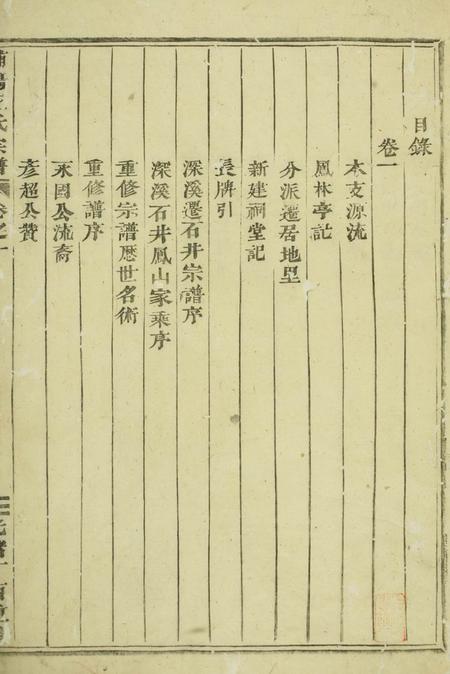 目錄
卷一
本支源流
鳳林亭記
分派遷居地里
新建祠堂記
長牌引
深溪遷石井宗譜序
深溪石井鳳山家乘序
重修宗譜歷世名術
重修譜序
永固公流裔
彥超公贊
氏宗譜
卷之一